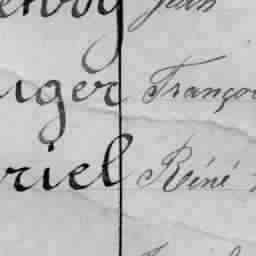 Jean
uger Franço
riel Réné